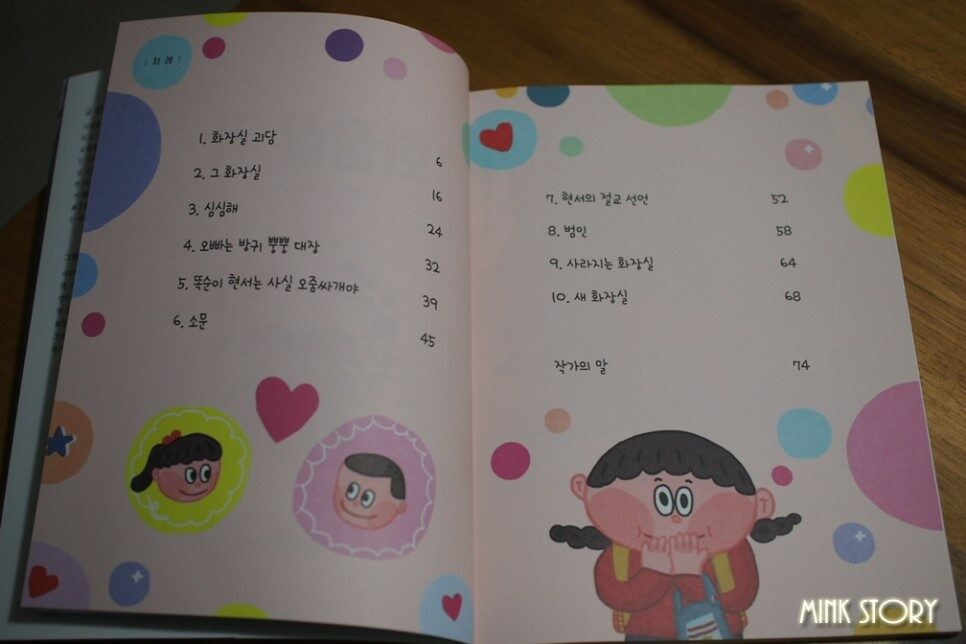 | 차 례 |
1. 화장실 괴담 6
2. 그 화장실 16
3. 심심해 24
4. 오빠는 방귀 뿡뿡 대장 32
5. 똑순이 현서는 사실 오줌싸개야 39
6. 소문 45
7. 현서의 절교 선언 52
8. 범인 58
9. 사라지는 화장실 64
10. 새 화장실 68
작가의 말 74
MINK STORY